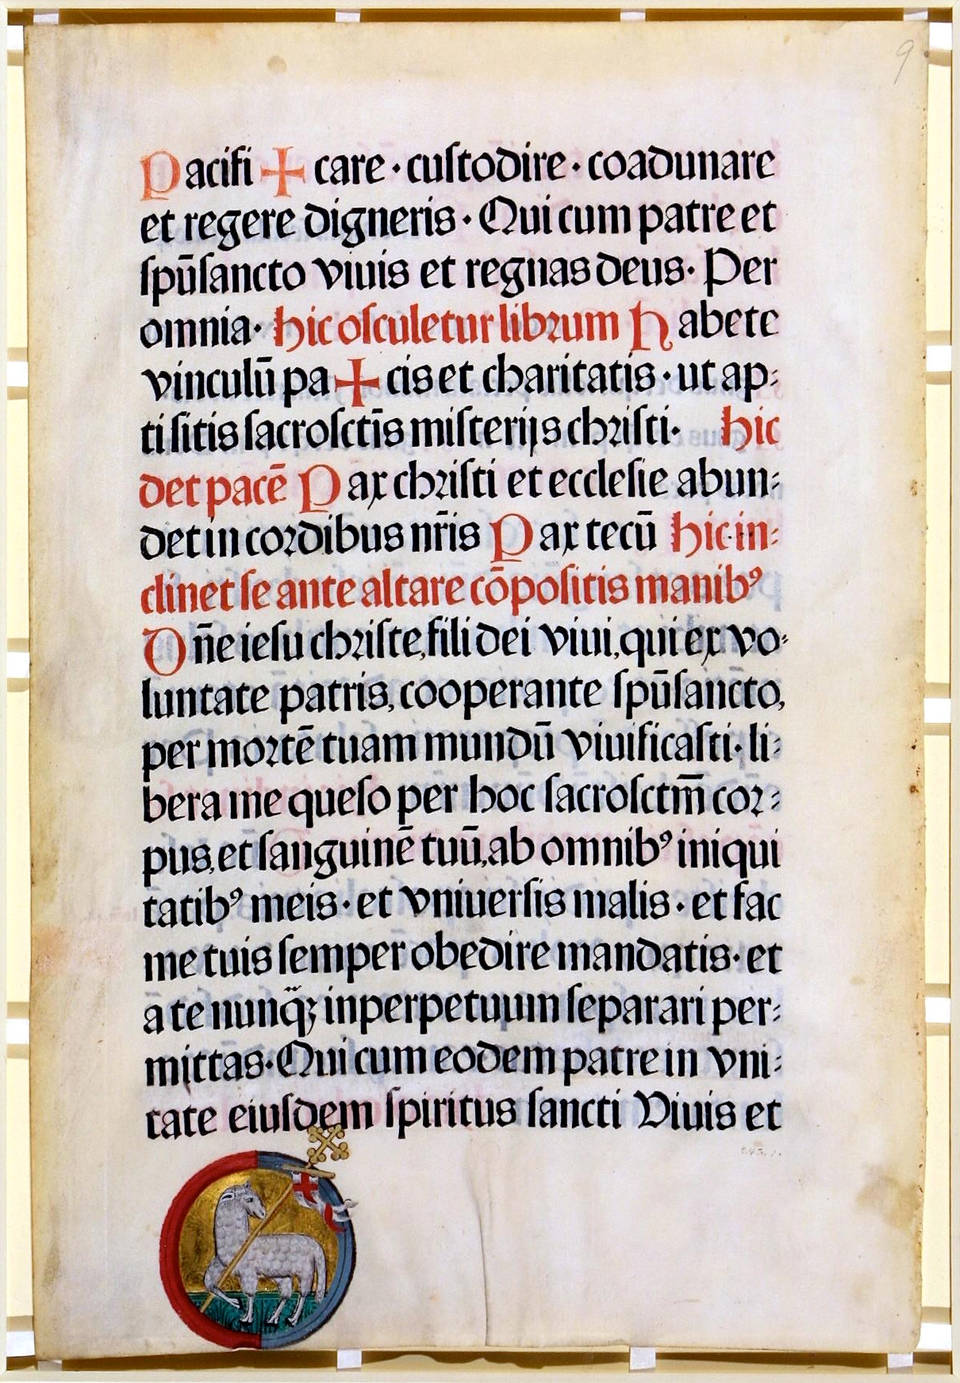 9
Pacifi ✠ care · custodire · coadunare
et regere digneris · Qui cum patre et
spūsancto viuis et regnas deus · Per
omnia · hic osculetur librum Habete
vinculū pa ✠ cis et charitatis · ut ap:
ti sitis sacrosctīs misterijs christi · hic
det pacē Pax christi et ecclesie abun:
det in cordibus nr̄is Pax tecū hic in:
clinet se ante altare cōpositis manibꝰ
Dn̄e iesu christe, fili dei viui, qui ex vo:
luntate patris, cooperante spūsancto,
per mortē tuam mundū viuificasti · li:
bera me queso per hoc sacrosctm̄ cor:
pus, et sanguinē tuū, ab omnibꝰ iniqui
tatibꝰ meis · et vniuersis malis · et fac
me tuis semper obedire mandatis · et
a te nunq̄ꝫ inperpetuum separari per:
mittas · Qui cum eodem patre in vni:
tate eiusdem spiritus sancti Viuis et